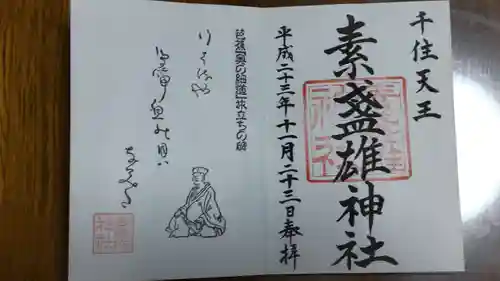 千住天王
素盞雄神社
平成二十三年十一月二十三日奉拝
芭蕉「奥の細道」旅立ちの碑
行くはるや
鳥啼魚の目ハ
なみだ